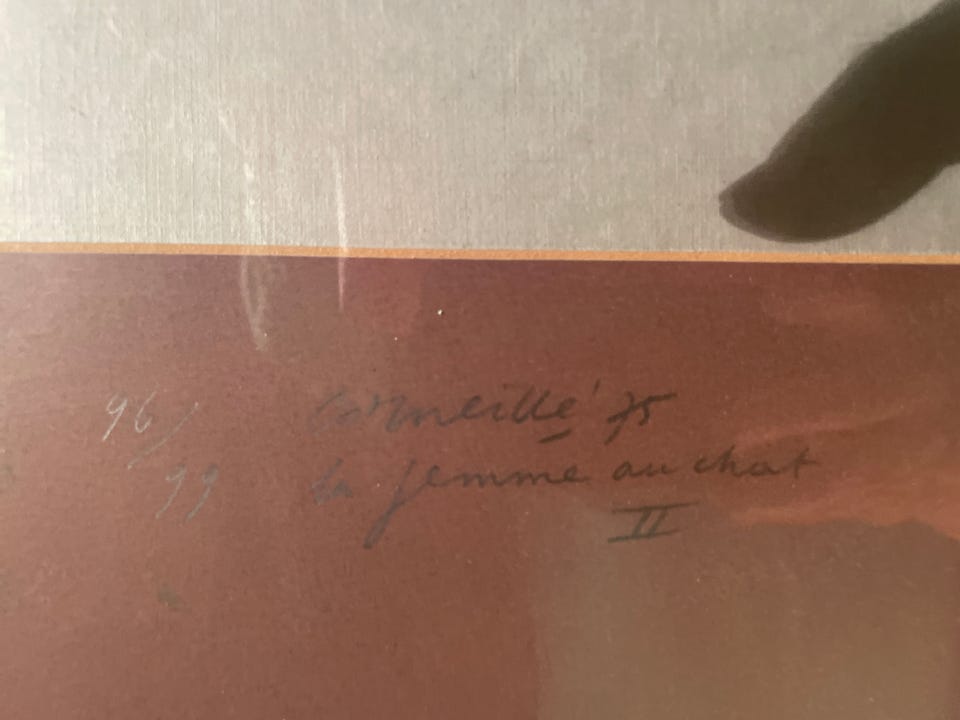 96/
99
Corneille '75
la femme au chat
II